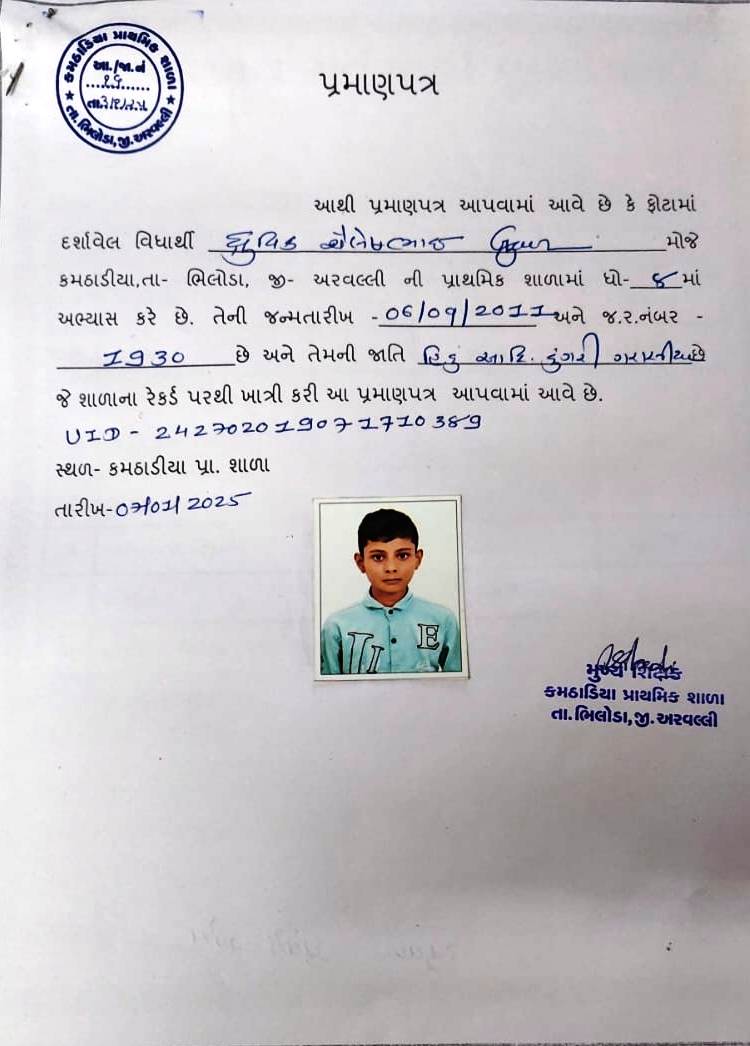 કમઠાડિયા પ્રાથમિક શાળા
આ./જા.નં
૧૬......
તા.
★ તા. ભિલોડા, જી. અરવલ્લી ★
પ્રમાણપત્ર
આથી પ્રમાણપત્ર આપવામાં આવે છે કે ફોટામાં
દર્શાવેલ વિધાર્થી મોજે
કમઠાડીયા,તા- ભિલોડા, જી- અરવલ્લી ની પ્રાથમિક શાળામાં ધો- ૪ માં
અભ્યાસ કરે છે. તેની જન્મતારીખ -06/09/2011 અને જ.ર.નંબર -
1930 છે અને તેમની જાતિ હિંદુ આદિ. ડુંગરી ગરાસીયા છે
જે શાળાના રેકર્ડ પરથી ખાત્રી કરી આ પ્રમાણપત્ર આપવામાં આવે છે.
UID - 242702019071710389
સ્થળ- કમઠાડીયા પ્રા. શાળા
તારીખ-07/01/2025
E
મુખ્ય શિક્ષક
કમઠાડિયા પ્રાથમિક શાળા
તા. ભિલોડા, જી. અરવલ્લી